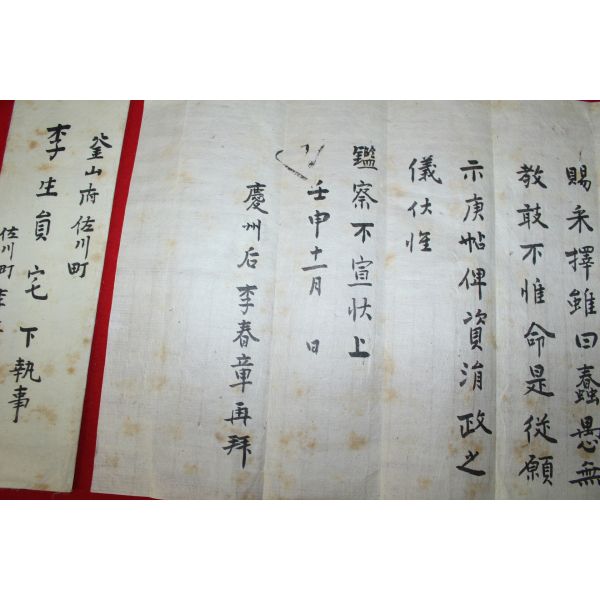 賜采擇雖曰蠢愚無
教敢不惟命是從願
示庚帖俾資涓政之
儀伏惟
鑑察不宣狀上
壬申十一月 日
慶州后李春章再拜
釜山府佐川町
李生員宅 下執事
佐川町李